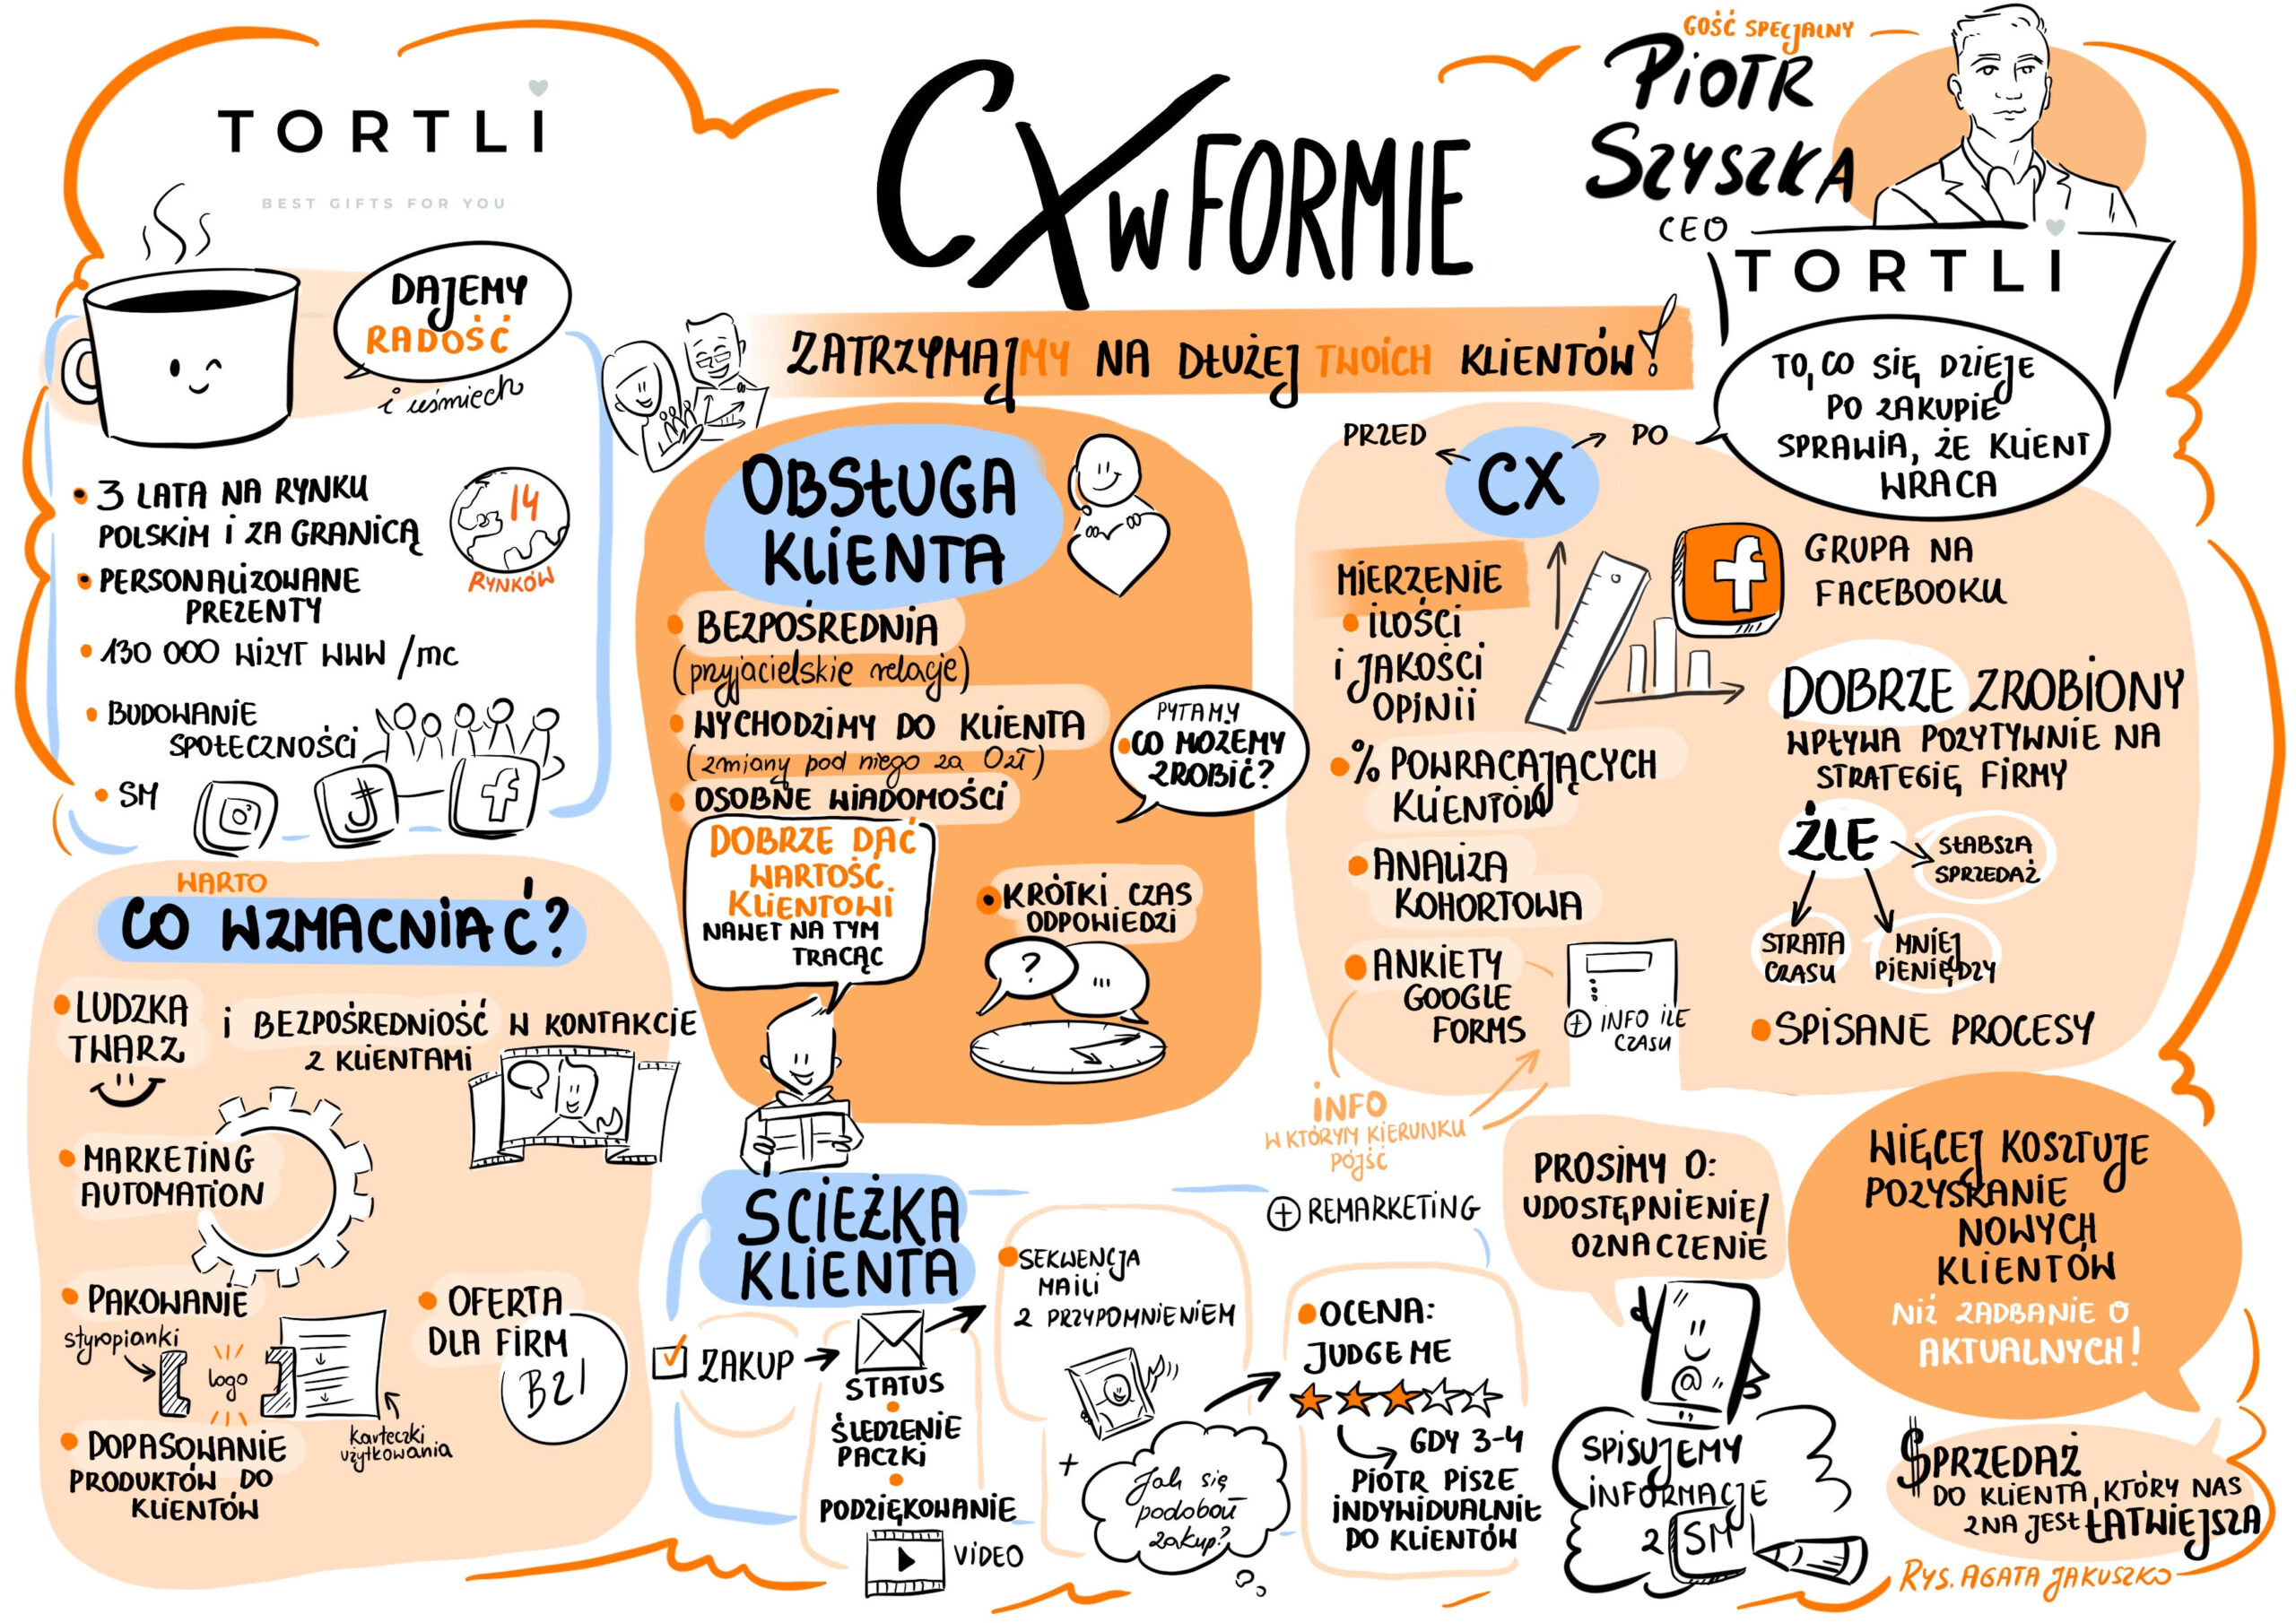 TORTLI
BEST GIFTS FOR YOU
DAJEMY
RADOŚĆ
i uśmiech
• 3 LATA NA RYNKU
POLSKIM I ZA GRANICĄ
14
RYNKÓW
• PERSONALIZOWANE
PREZENTY
• 130 000 WIZYT WWW /mc
• BUDOWANIE
SPOŁECZNOŚCI
• SM
CX W FORMIE
ZATRZYMAJMY NA DŁUŻEJ TWOICH KLIENTÓW!
GOŚĆ SPECJALNY
PIOTR
SZYSZKA
CEO
TORTLI
TO, CO SIĘ DZIEJE
PO ZAKUPIE
SPRAWIA, ŻE KLIENT
WRACA
OBSŁUGA
KLIENTA
• BEZPOŚREDNIA
(przyjacielskie relacje)
• WYCHODZIMY DO KLIENTA
(zmiany pod niego za 0zł)
• OSOBNE WIADOMOŚCI
PYTAMY
• CO MOŻEMY
ZROBIĆ?
DOBRZE DAĆ
WARTOŚĆ
KLIENTOWI
NAWET NA TYM
TRACĄC
• KRÓTKI CZAS
ODPOWIEDZI
?
...
PRZED
CX
PO
MIERZENIE
• ILOŚCI
I JAKOŚCI
OPINII
• % POWRACAJĄCYCH
KLIENTÓW
• ANALIZA
KOHORTOWA
• ANKIETY
GOOGLE
FORMS
+ INFO ILE
CZASU
INFO
W KTÓRYM KIERUNKU
PÓJŚĆ
+ REMARKETING
GRUPA NA
FACEBOOKU
DOBRZE ZROBIONY
WPŁYWA POZYTYWNIE NA
STRATEGIĘ FIRMY
ŹLE
SŁABSZA
SPRZEDAŻ
STRATA
CZASU
MNIEJ
PIENIĘDZY
• SPISANE PROCESY
WARTO
CO WZMACNIAĆ?
• LUDZKA
TWARZ
I BEZPOŚREDNIOŚĆ W KONTAKCIE
Z KLIENTAMI
• MARKETING
AUTOMATION
• PAKOWANIE
styropianki
logo
karteczki
użytkowania
• OFERTA
DLA FIRM
B2B
• DOPASOWANIE
PRODUKTÓW DO
KLIENTÓW
ŚCIEŻKA
KLIENTA
ZAKUP
STATUS
• ŚLEDZENIE
PACZKI
• PODZIĘKOWANIE
VIDEO
• SEKWENCJA
MAILI
Z PRZYPOMNIENIEM
+
Jak się
podobał
zakup?
• OCENA:
JUDGE ME
GDY 3-4
PIOTR PISZE
INDYWIDUALNIE
DO KLIENTÓW
PROSIMY O:
UDOSTĘPNIENIE/
OZNACZENIE
@
SPISUJEMY
INFORMACJE
Z SM
WIĘCEJ KOSZTUJE
POZYSKANIE
NOWYCH
KLIENTÓW
NIŻ ZADBANIE O
AKTUALNYCH!
$PRZEDAŻ
DO KLIENTA, KTÓRY NAS
ZNA JEST ŁATWIEJSZA
RYS. AGATA JAKUSZKO